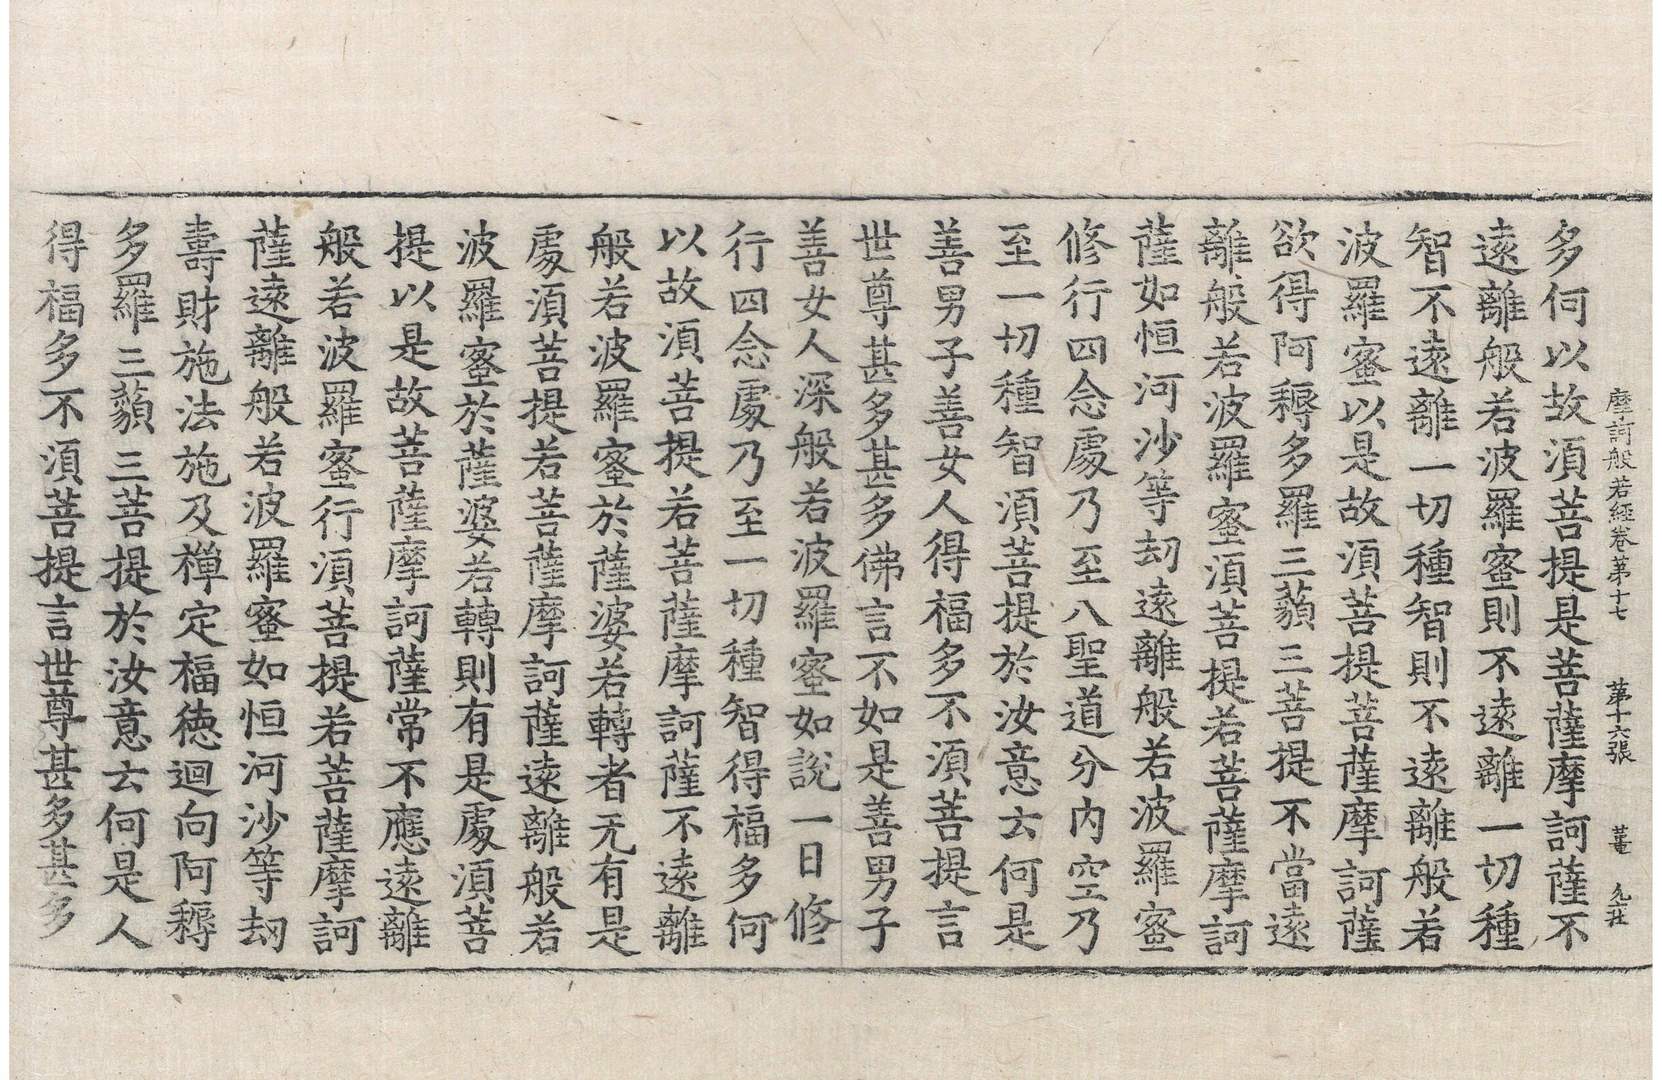 摩訶般若經卷第十七　第十六張
多何以故須菩提是菩薩摩訶薩不
遠離般若波羅蜜則不遠離一切種
智不遠離一切種智則不遠離般若
波羅蜜以是故須菩提菩薩摩訶薩
欲得阿耨多羅三藐三菩提不當遠
離般若波羅蜜須菩提若菩薩摩訶
薩如恒河沙等劫遠離般若波羅蜜
修行四念處乃至八聖道分內空乃
至一切種智須菩提於汝意云何是
善男子善女人得福多不須菩提言
世尊甚多甚多佛言不如是善男子
善女人深般若波羅蜜如說一日修
行四念處乃至一切種智得福多何
以故須菩提若菩薩摩訶薩不遠離
般若波羅蜜於薩婆若轉者无有是
處須菩提若菩薩摩訶薩遠離般若
波羅蜜於薩婆若轉則有是處須菩
提以是故菩薩摩訶薩常不應遠離
般若波羅蜜行須菩提若菩薩摩訶
薩遠離般若波羅蜜如恒河沙等劫
壽財施法施及禪定福德迴向阿耨
多羅三藐三菩提於汝意云何是人
得福多不須菩提言世尊甚多甚多